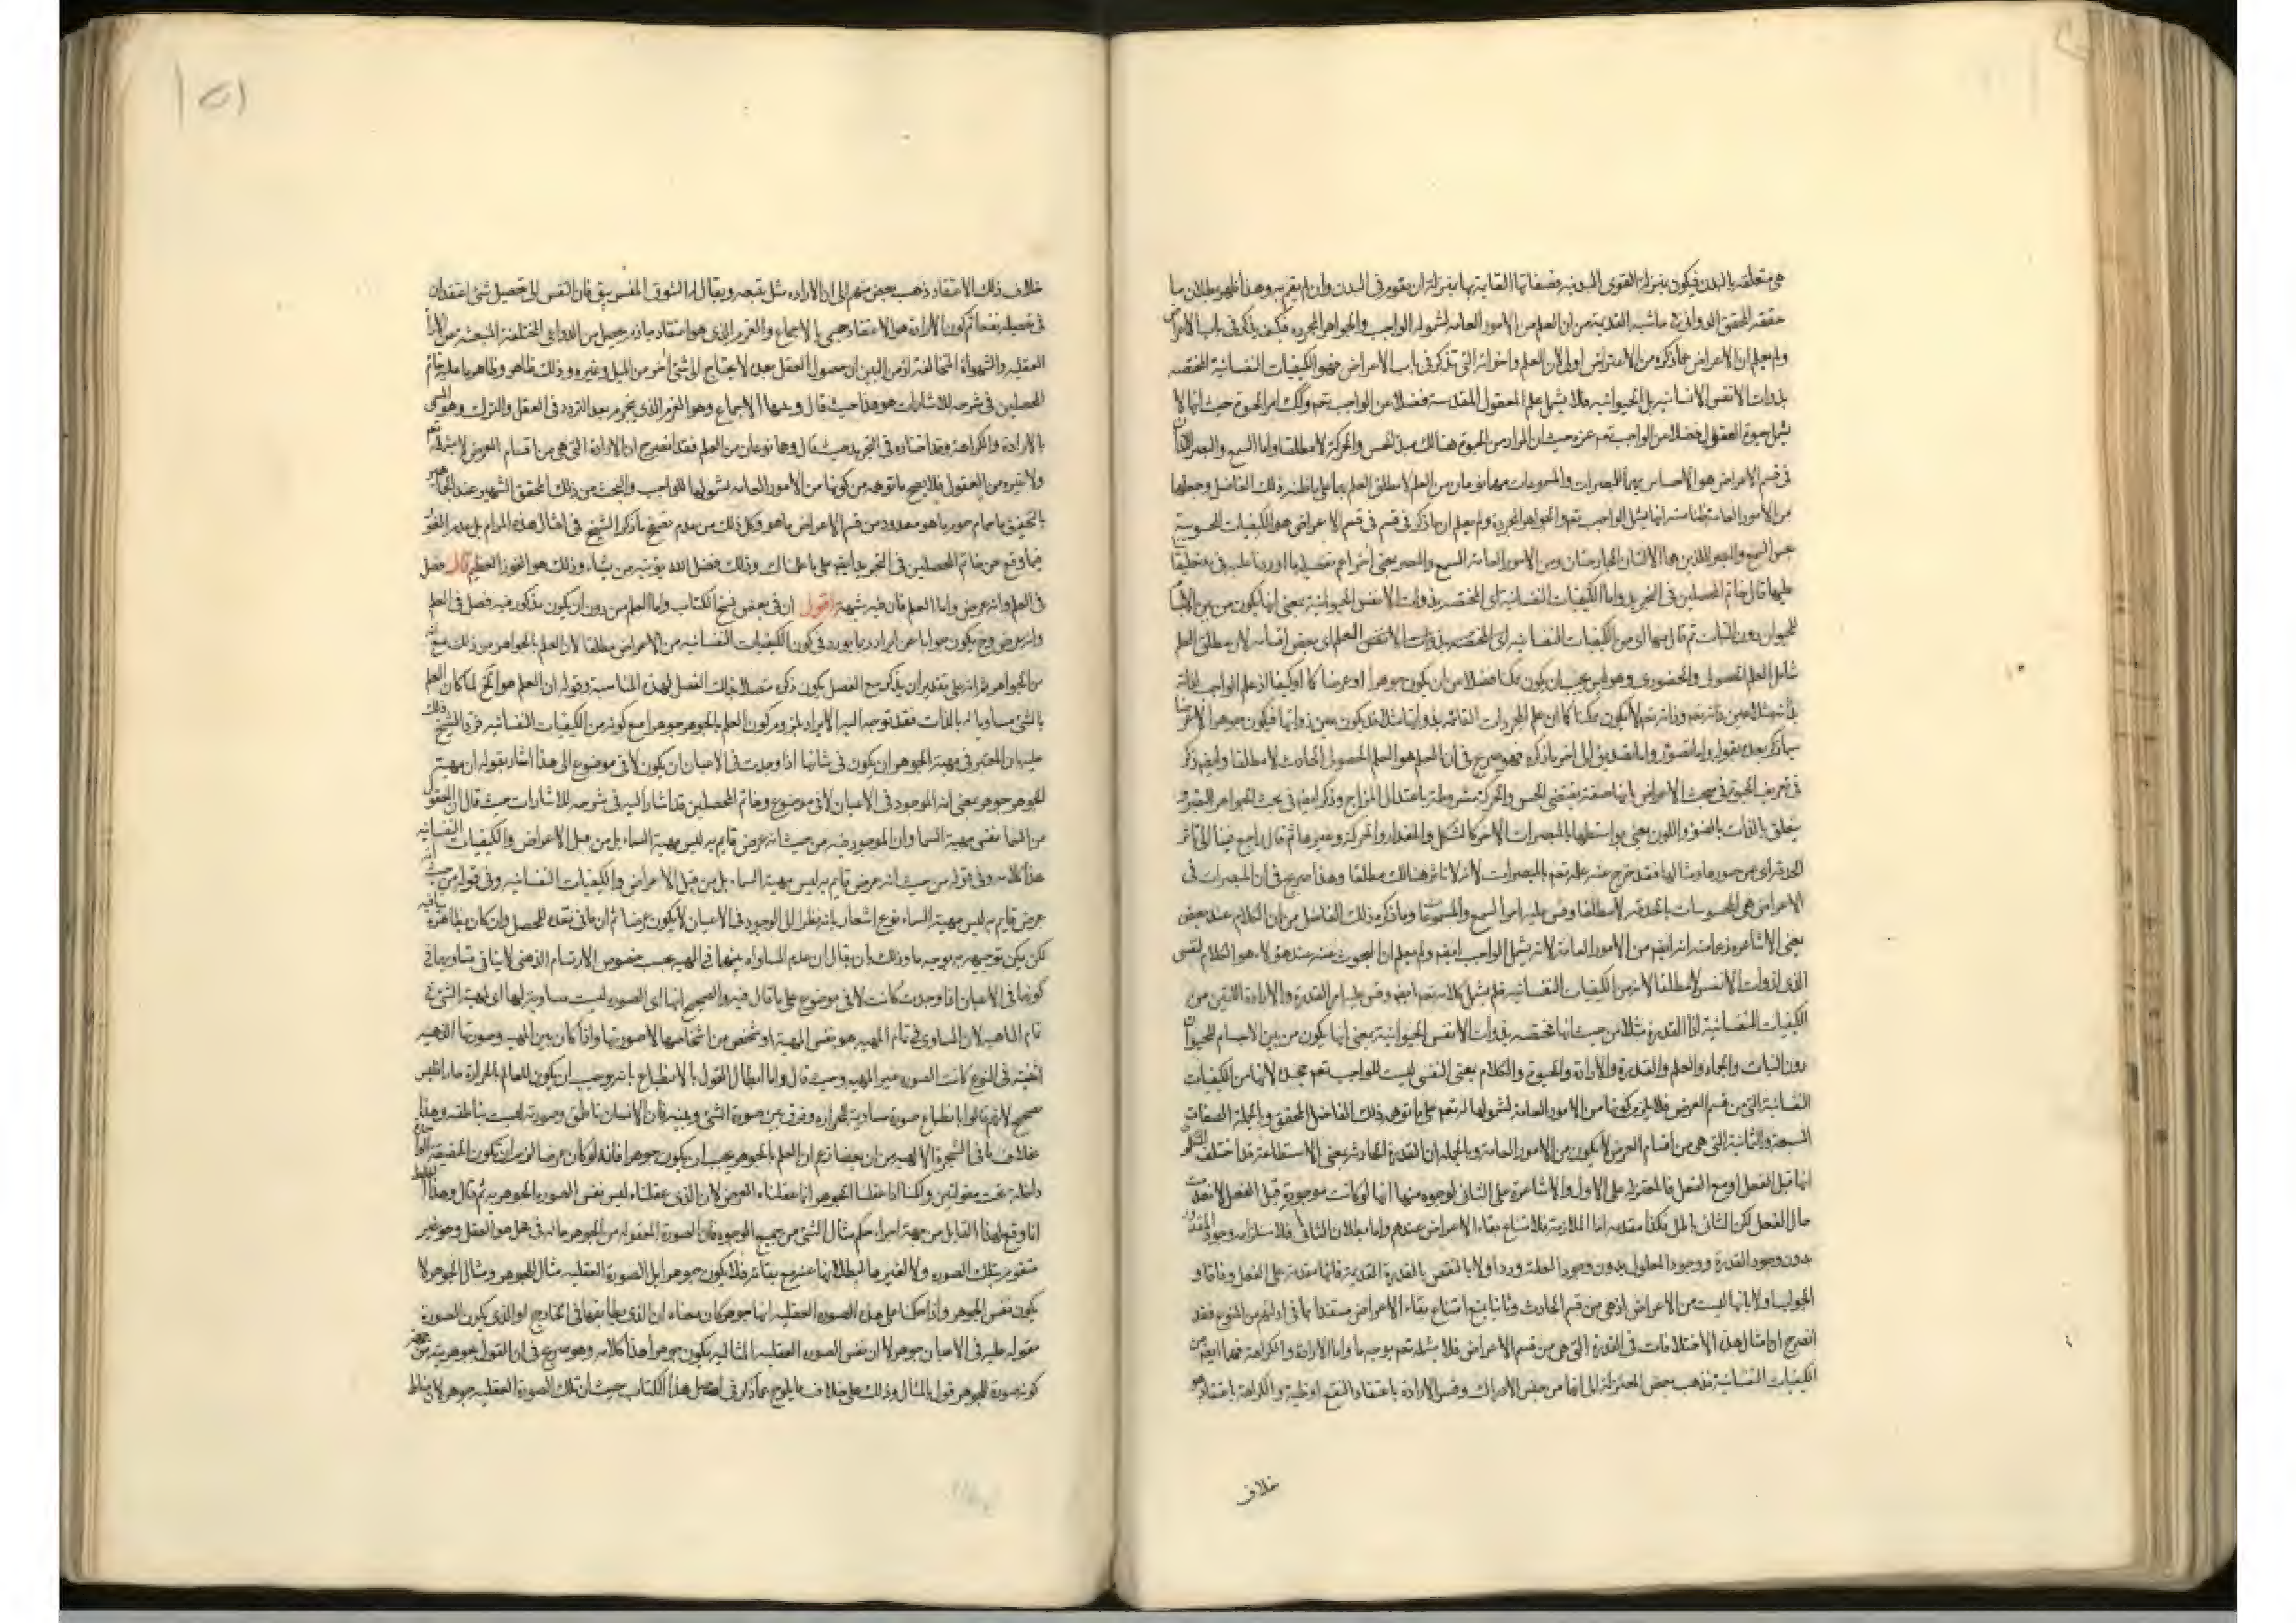 هى متعلقه بالبدن فيكون بمنزلة القوى البدنيه فصفاتها القايمة بها بمنزلة ان يقوم فى البدن وان لم يقم به وهذا ظهر بطلان ما
حققه المحقق الدوانى فى حاشيه القديمة من ان العلم من الامور العامه لشموله الواجب والجواهر المجرده فكيف يذكر فى باب الاعراض
ولم يعلم ان الاعراض عما ذكره من الاعتراض اولى لان العلم واخواته التى تذكر فى باب الاعراض فهو الكيفيات النفسانية المختصه
بذوات الانفس الانسانيه بل الحيوانيه فلا يشمل علم العقول المقدسة فضلا عن الواجب تعم وكك امر الحيوة حيث انها لا
يشمل حيوة العقول فضلا عن الواجب تعم عزه حيث ان المراد من الحيوة هنالك مبدا الحس والحركة لا مطلقا واما السمع والبصر
فى قسم الاعراض هو الاحساس بهما للمبصرات والمسموعات فهما نوعان من العلم لا مطلق العلم بها على ما ظنه ذلك الفاضل وجعلها
من الامور العامة ظنا منه انها يشمل الواجب تعم والجواهر المجردة ولم يعلم ان ما ذكر فى قسم الاعراض هو الكيفيات المحسوسة
عليها قال خاتم المحصلين فى التجريد واما الكيفيات النفسانية اى المختصه بذوات الانفس الحيوانية بمعنى انها يكون من بين الاجسام
للحيوان دون النبات ثم قال منها اى من الكيفيات النفسانيه اى المختصه بذوات الانفس العلم اى بعض اقسامه لان مطلق العلم
شامل العلم الحصولى والحضورى وهو ليس يجب ان يكون ممكنا فضلا من ان يكون جوهرا او عرضا كما او كيفا اذ علم الواجب تعالى
بذاته مثلا عين ذاته تعم وذاته تعم لا يكون ممكنا كما ان علم المجردات القائمه بذواتها مثلا قد يكون عين ذواتها فيكون جوهرا لا عرضا
بما ذكر بعده بقوله واما تصور واما تصديق الى اخر ما ذكره فهو صريح فى ان العلم هو العلم الحصولى الحادث لا مطلقا وايضا ذكر
فى تعريف الحيوة فى مبحث الاعراض بانها صفة يقتضى الحس والحركة مشروطة باعتدال المزاج وذكر ايضا فى بحث الجواهر
يتعلق بالذات بالضوء واللون يعنى بواسطتها بالمبصرات الاخر كالشكل والمقدار والحركة وغيرها ثم قال راجع فينا الى تاثر
الحدقة اى عن صورها ومثالها فقد خرج عنه علمه تعم بالمبصرات لانه لا تاثر هنالك مطلقا وهذا صريح فى ان المبصرات فى
الاعراض هى المحسوسات بالحدقه لا مطلقا وقس عليه امر السمع والمسموعات وما ذكره ذلك الفاضل من ان الكلام عند بعض
يعنى الاشاعره زعما منه انه ايضا من الامور العامة لانه يشمل الواجب ايضا ولم يعلم ان المبحوث عنه عند هؤلاء هو الكلام النفسى
الذى لذوات الانفس لا مطلقا لانه من الكيفيات النفسانيه فلم يشمل كلامه تعم ايضا وقس عليه امر القدرة والارادة اللتين من
الكيفيات النفسانية اذ القدرة مثلا من حيث انها مختصه بذوات الانفس الحيوانية بمعنى انها يكون من بين الاجسام للحيوان
دون النبات والجماد والعلم والقدرة والارادة والحيوة والكلام بمعنى النفسى ليست للواجب تعم مجده لانها من الكيفيات
النفسانية التى من قسم العرض فلا يلزم كونها من الامور العامة لشمولها له تعم على ما توهمه ذلك الفاضل المحقق وبالجملة الصفات
السبعة والثمانية التى هى من اقسام العرض لا يكون من الامور العامة وبالجملة ان القدرة الحادثة بمعنى الاستطاعة قد اختلف
انها قبل الفعل او مع الفعل فالمعتزلة على الاول والاشاعرة على الثانى لوجوه منها انها لو كانت موجودة قبل الفعل لانعدمت
حال الفعل لكن التالى باطل فكذا مقدمه اما الملازمة فلامتناع بقاء الاعراض عندهم واما بطلان التالى فلاستلزامه وجود المقدور
بدون وجود القدرة ووجود المعلول بدون وجود العلة ورد اولا بالنقض بالقدرة القديمة فانها متقدمة على الفعل وفاقا و
الجواب اولا بانها ليست من الاعراض اذ هى من قسم الحادث وثانيا بمنع امتناع بقاء الاعراض مستندا بما فى ادلتهم من المنوع فقد
انصرح ان امثال هذه الاختلافات فى القدرة التى هى من قسم الاعراض فلا يشمله تعم بوجه ما واما الارادة والكراهة فهما ايضا من
الكيفيات النفسانية فذهب بعض المعتزلة الى انها من جنس الادراك وفسر الارادة باعتقاد النفع او ظنه والكراهة باعتقاد
خلاف
١٥١
خلاف ذلك الاعتقاد ذهب بعض منهم الى ان الاراده مثل يتبعه ويقال له الشوق المفسر بتوقان النفس الى تحصيل شئ اعتقد ان
فى تحصيله نفعا ثم كون الارادة هو الاعتقاد يسمى بالاجماع والعزم الذى هو اعتقاد جازم حصل من الدواعى المختلفة المنبعثة عن الاراء
العقليه والشهواة المتخالفة اذ من البين ان حصول الفعل بعده لا يحتاج الى شئ اخر من الميل وغيره وذلك ظاهر وظاهر ما عليه خاتم
المحصلين فى شرحه للاشارات هو هذا حيث قال وبعدها الاجماع وهو العزم الذى ينجزم بعد التردد فى الفعل والترك وهو المسمى
بالارادة والكراهة وقد اختاره فى التجريد حيث قال وهما نوعان من العلم فقد انصرح ان الارادة التى هى من اقسام العرض لا يشمله تعم
ولا غيره من العقول فلا يصح ما توهمه من كونها من الامور العامه بشمولها للواجب والبحث من ذلك المحقق الشهير عند الجماهير
فيما وقع من خاتم المحصلين فى التجريد ايضا على ما علمناك وذلك فضل الله يؤتيه من يشاء وذلك هو الفوز العظيم قال فصل
فى العلم وانه عرض واما العلم فان فيه شبهة اقول ان فى بعض نسخ الكتاب واما العلم من دون ان يكون مذكور فيه فصل فى العلم
وانه عرض وح يكون جوابا عن ايراد ربما يورد فى كون الكيفيات النفسانيه من الاعراض مطلقا لان العلم بالجواهر من ذلك مع انه
من الجواهر ثم انه على تقدير ان يذكر مع الفصل يكون ذكره متصلا بذلك الفصل لهذه المناسبة وقوله ان العلم هو الخ لما كان العلم
بالشئ مساويا له بالذات فقد توجه اليه الايراد بلزوم كون العلم بالجوهر جوهرا مع كونه من الكيفيات النفسانيه فرد الشيخ ذلك
عليه بان المعتبر فى مهية الجوهر ان يكون فى شانها اذا وجدت فى الاعيان ان يكون لا فى موضوع الى هذا اشار بقوله ان مهية
الجوهر جوهر بمعنى انه الموجود فى الاعيان لا فى موضوع وخاتم المحصلين قد اشار اليه فى شرحه للاشارات حيث قال ان المعقول
من السما نفس مهية السما وان الموجود فيه من حيث انه عرض قايم به ليس مهية السماء بل من قبيل الاعراض والكيفيات النفسانيه
هذا كلامه وفى قوله من حيث انه عرض قايم به ليس مهية السماء بل من قبل الاعراض والكيفيات النفسانيه وفى قوله من حيث انه
عرض قايم به ليس مهية السماء نوع اشعار بانه نظرا الى الوجود فى الاعيان لا يكون عرضا ثم ان ما فى نقده للمحصل وان كان بظاهره ينافيه
لكن يمكن توجيهه بوجه ما وذلك بان يقال ان عدم المساواة بينهما فى المهيه بحسب خصوص الارتسام الذهنى لا ينافى تساويهما فى
كونها فى الاعيان اذا وجدت كانت لا فى موضوع على ما قال فيه والصحيح انها اى الصوره ليست مساوية لها اى لمهية الشئ فى
تمام الماهيه لان المساوى فى تمام المهيه هو نفس المهية او شخص من اشخاصها لا صورتها واذا كان بين المهيه وصورتها الذهنيه
اثنينية فى النوع كانت الصوره غير المهيه وحيث قال واما ابطال القول بالانطباع بانه يوجب ان يكون للعالم بالحرارة حارا فليس
صحيح لانهم قالوا بانطباع صورة مساوية للحراره وفرق بين صورة الشئ وبينه فان الانسان ناطق وصورته ليست بناطقه وهذا
بخلاف ما فى الشجرة الالهيه من ان بعضا زعم ان العلم بالجوهر يجب ان يكون جوهرا فانه لو كان عرضا لزم ان يكون الحقيقة الواحدة
داخلة تحت مقولتين ولكنا اذا عقلنا الجوهر انما عقلناه العرض لان الذى عقلناه ليس نفس الصوره الجوهريه ثم قال وهذا الغلط
انما وقع لهذا القايل من جهة اجراء حكم مثال الشئ من جميع الوجوه فان الصورة المعقوله من الجوهر حاله فى محل هو العقل وهو غير
متقوم بتلك الصوره ولا لغيرها لبطلانها عنه مع بقائه فلا يكون جوهرا بل الصورة العقليه مثال للجوهر ومثال الجوهر لا
يكون نفس الجوهر واذا حكمنا على هذه الصورة العقليه انها جوهر كان معناه ان الذى يطابقها فى الخارج او الذى يكون الصورة
مقوله عليه فى الاعيان جوهر لا ان نفس الصوره العقليه المثاليه يكون جوهرا هذا كلامه وهو صريح فى ان القول بجوهريته من حيث
كونه صورة للجوهر قول بالمثال وذلك على خلاف ما يلوح عما ذكر فى اصل هذا الكتاب حيث ان تلك الصورة العقليه جوهر لان مناط